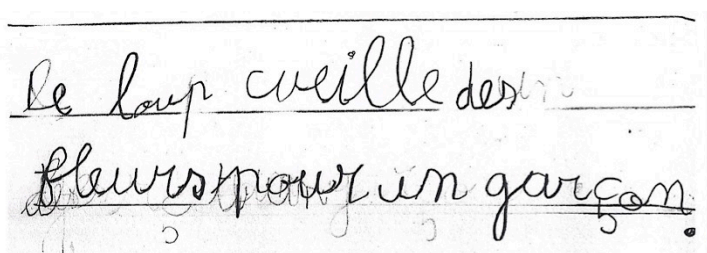 Le loup cueille des
fleurs pour un garçon.